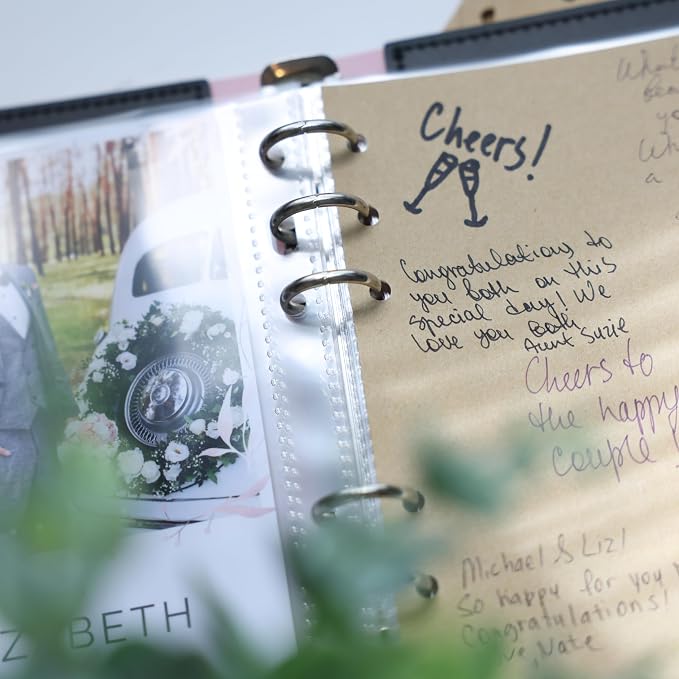 ZABETH
Cheers!
Congratulations to
you both on this
special day! We
love you both
Aunt Suzie
Cheers to
the happy
couple
What
bea
yo
Wh
a
Michael & Liz!
So happy for you
Congratulations!
ve, Nate